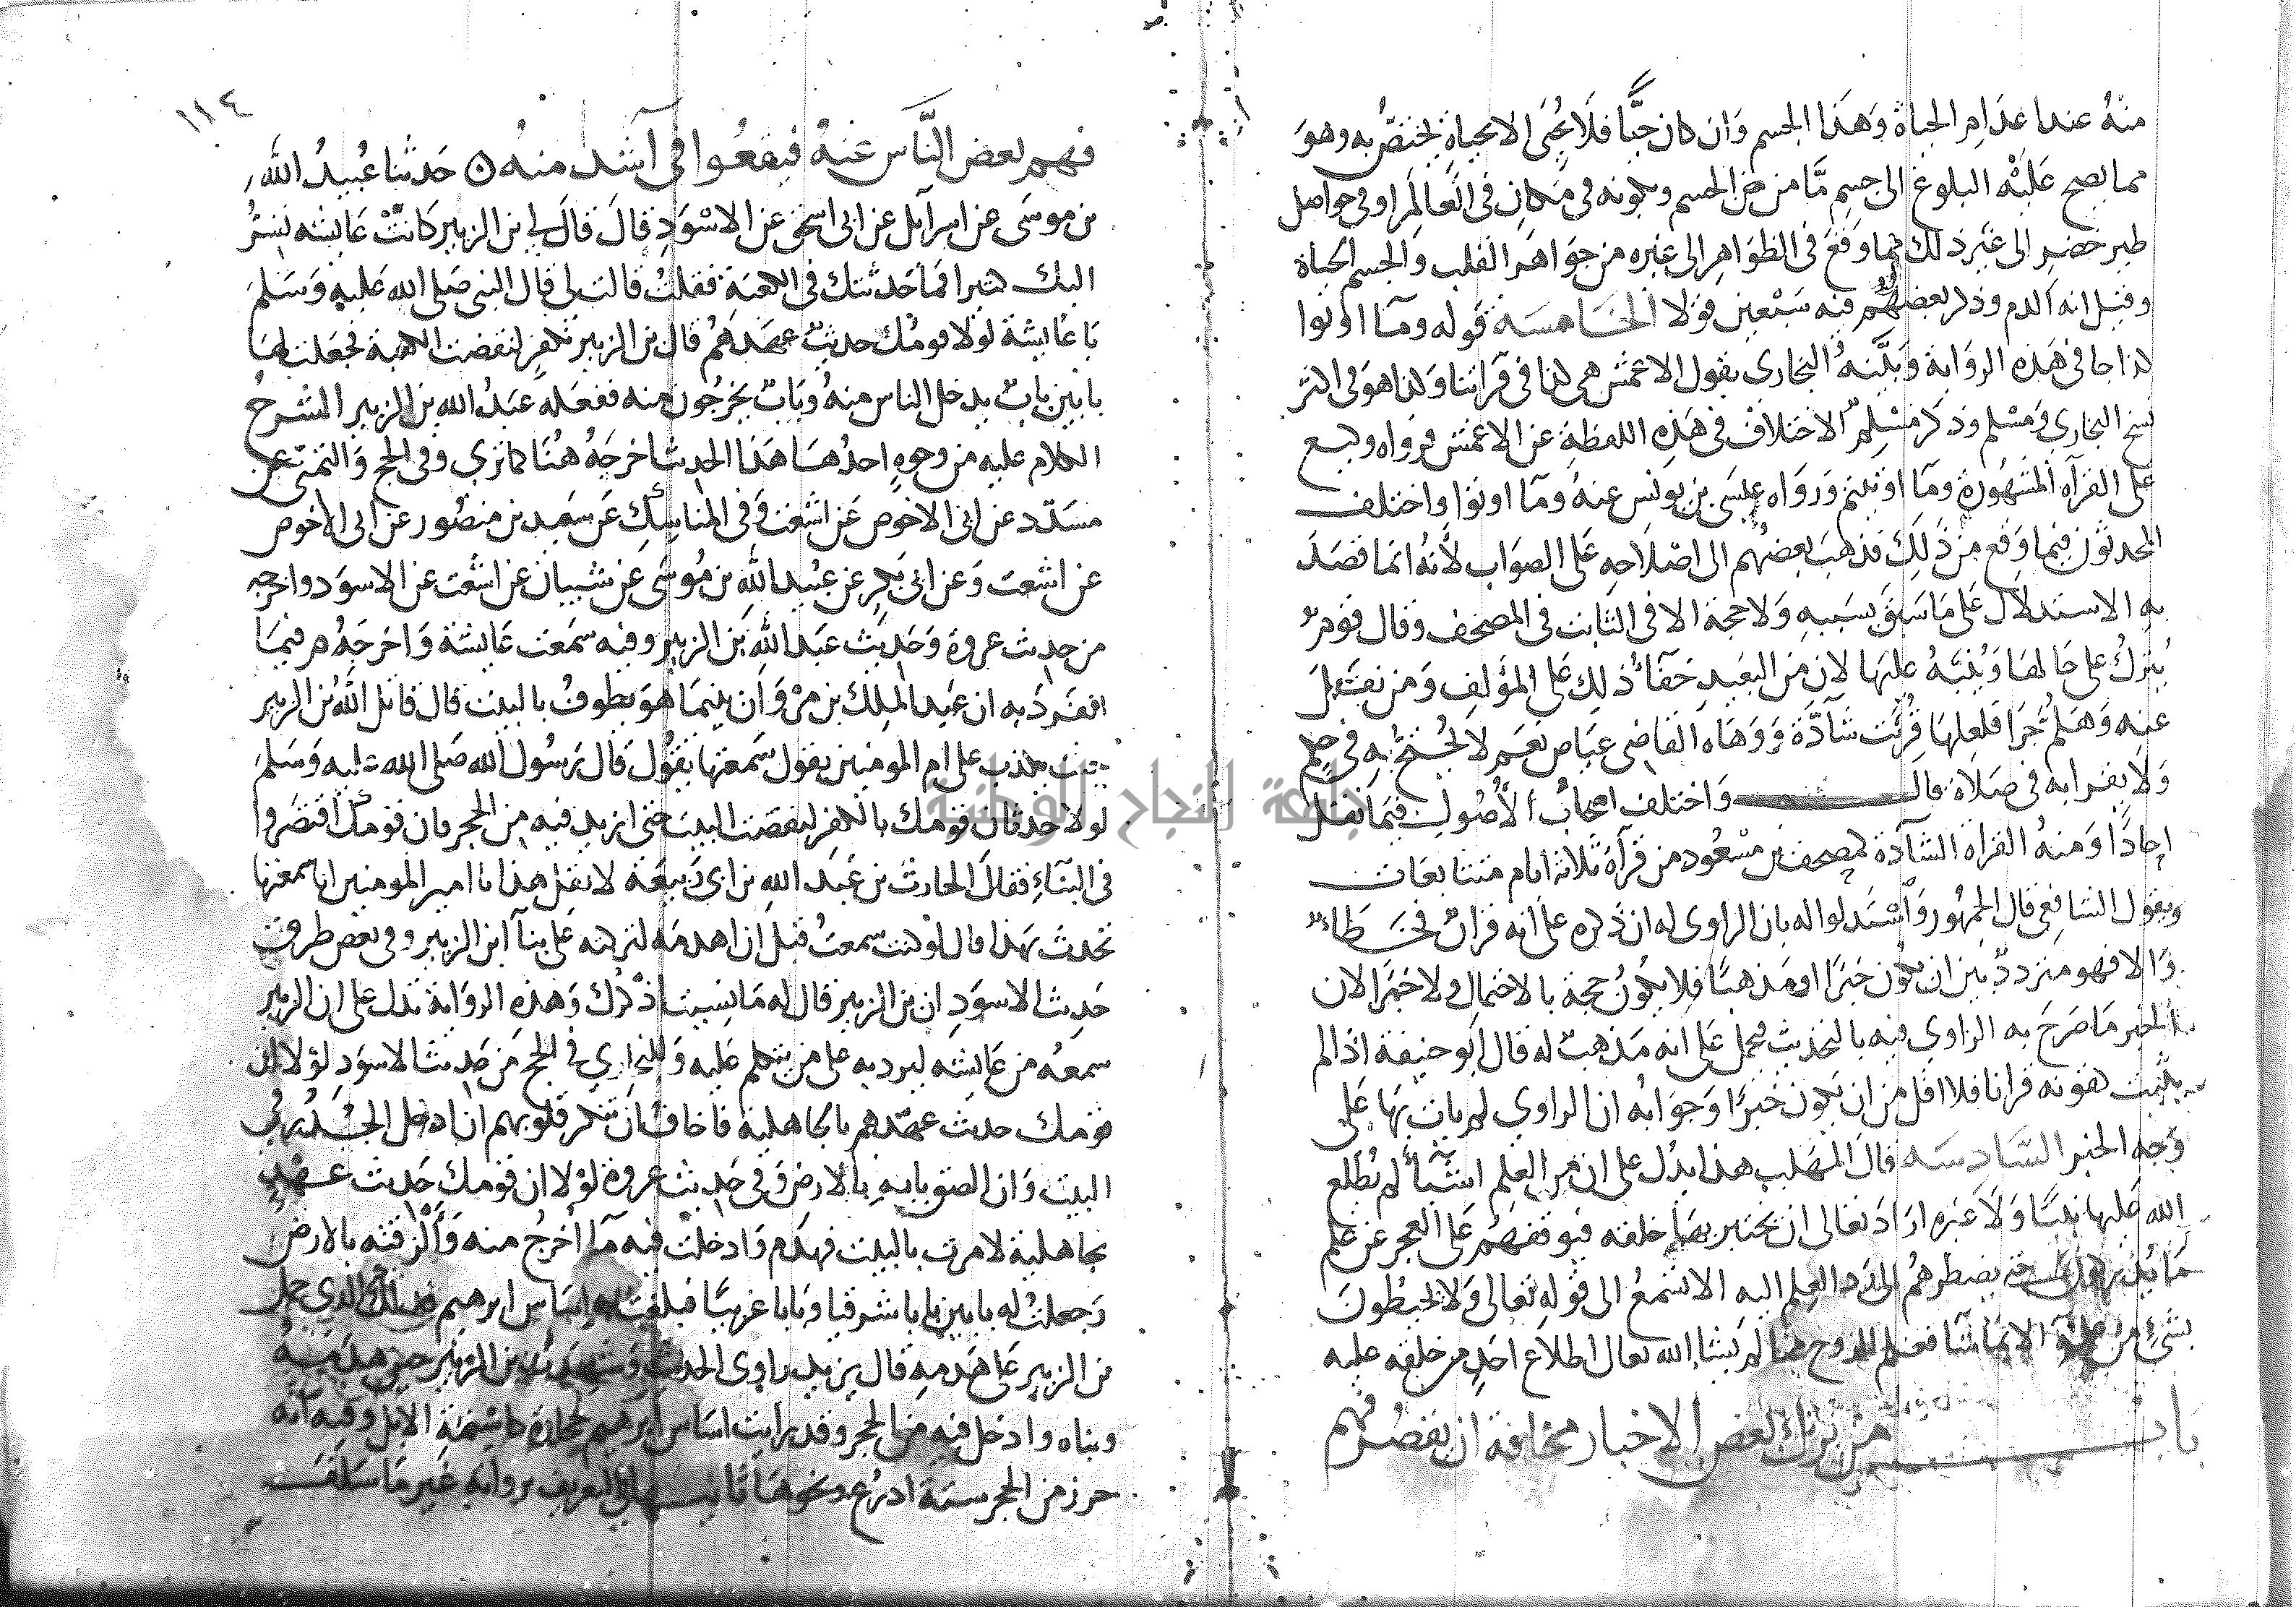 منه عند اعدام الحياة وهذا الجسم وان كان حيا فلا يحيى الا بحياة يختص به وهو
مما يصح عليه البلوغ الى جسم ما من الجسم وبكونه في مكان في العالم او في حواصل
طير خضر الى غير ذلك مما وقع في الظواهر الى غيره من جواهر القلب والجسم الحياة
وقيل انه الدم وذكر بعضهم فيه سبعين قولا الخامسة قوله وما اوتوا
كذا جا في هذه الرواية وبينه البخاري بقول الاعمش هي كذا في قراتنا وكذا هو في اكثر
نسخ البخاري ومسلم وذكر مسلم الاختلاف في هذه اللفظة عن الاعمش فرواه وكيع
على القراه المشهورة وما اوتيتم ورواه عيسى بن يونس عنه وما اوتوا واختلف
المحدثون فيما وقع من ذلك فذهب بعضهم الى اصلاحه على الصواب لانه انما قصد
به الاستدلال على ما سيق بسببه ولا حجة الا في الثابت في المصحف وقال قوم
يترك على حالها وينبه عليها لان من البعيد خفاء ذلك على المؤلف ومن نقل
عنه وهلم جرا فلعلها قرئت شاذة ووهاه القاضي عياض نعم لا يحتج به في حكم
ولا يقرا به في صلاة قال واختلف اصحاب الاصول فيما نقل
احادا ومنه القراه الشاذة كمصحف بن مسعود من قرآة ثلاثة ايام متتابعات
وبقول الشافعي قال الجمهور واستدلوا له بان الراوي له ان ذكره على انه قران فخطا
والا فهو متردد بين ان يكون خبرا او مذهبا فلا يكون حجة بالاحتمال ولا خبرا لان
الخبر ما صرح به الراوي فيه بالتحديث فيحمل على انه مذهب له قال ابو حنيفة اذا لم
يثبت كونه قرانا فلا اقل من ان يكون خبرا وجوابه ان الراوي لم يات بها على
وجه الخبر السادسه قال المهلب هذا يدل على ان من العلم اشيآ لم يطلع
الله عليها نبيا ولا غيره اراد تعالى ان يختبر بها خلقه فيوقفهم على العجز عن علم
ما يدركون حتى يضطرهم الى رد العلم اليه الا تسمع الى قوله تعالى ولا يحيطون
بشئ من علمه الا بما شا فعلم الروح مما لم يشا الله تعالى اطلاع احد من خلقه عليه
باب من ترك بعض الاخبار مخافة ان يقصر فهم
١١٤
فهم بعض الناس عنه فيقعوا في آشد منه ه حدثنا عبيد الله
بن موسى عن اسرآيل عن ابي اسحق عن الاسود قال قال لي بن الزبير كانت عايشه تسر
اليك كثيرا فما حدثتك في الكعبة فقلت قالت لي قال النبي صلى الله عليه وسلم
يا عايشة لولا قومك حديث عهدهم قال بن الزبير بكفر لنقضت الكعبة فجعلت لها
بابين باب يدخل الناس منه وباب يخرجون منه ففعله عبد الله بن الزبير الشرح
الكلام عليه من وجوه احدها هذا الحديث اخرجه هنا كما ترى وفي الحج والتمني عن
مسدد عن ابي الاحوص عن اشعث وفي المناسك عن سعيد بن منصور عن ابي الاحوص
عن اشعث وعن ابي بكر عن عبيد الله بن موسى عن شيبان عن اشعث عن الاسود واخرجه
من حديث عروة وحديث عبد الله بن الزبير وفيه سمعت عايشة واخرجه م فيما
انفرد به ان عبد الملك بن مروان بينما هو يطوف بالبيت قال قاتل الله بن الزبير
حيث يكذب على ام المومنين يقول سمعتها تقول قال رسول الله صلى الله عليه وسلم
لولا حدثان قومك بالكفر لنقضت البيت حتى ازيد فيه من الحجر فان قومك اقتصروا
في البنآء فقال الحارث بن عبد الله بن ابي ربيعة لا تقل هذا يا امير المومنين انا سمعتها
تحدث بهذا قال لو كنت سمعت قبل ان اهدمه لتركته على بنآ ابن الزبير وفي بعض طرق
حديث الاسود ان بن الزبير قال له ما نسيت اذكرك وهذه الرواية تدل على ان الزبير
سمعه من عايشه ليرد به على من يتكلم عليه وللبخاري في الحج من حديث الاسود لولا ان
قومك حديث عهدهم بالجاهلية فاخاف ان تنكر قلوبهم ان ادخل الجدر في
البيت وان الصق بابه بالارض وفي حديث عروة لولا ان قومك حديث عهد
بجاهلية لامرت بالبيت فهدم وادخلت فيه مآ اخرج منه وألزقته بالارض
وجعلت له بابين بابا شرقيا وبابا غربيا فبلغت به اساس ابرهيم فذلك الذي حمل
بن الزبير على هدمه قال يزيد راوي الحديث وشهدت بن الزبير حين هدمه
وبناه وادخل فيه من الحجر وقد رايت اساس ابرهيم حجارة كاسنمة الابل وفيه انه
حرز من الحجر ستة اذرع ونحوها ثانيها في التعريف برواته غير ما سلف
جامعة النجاح الوطنية